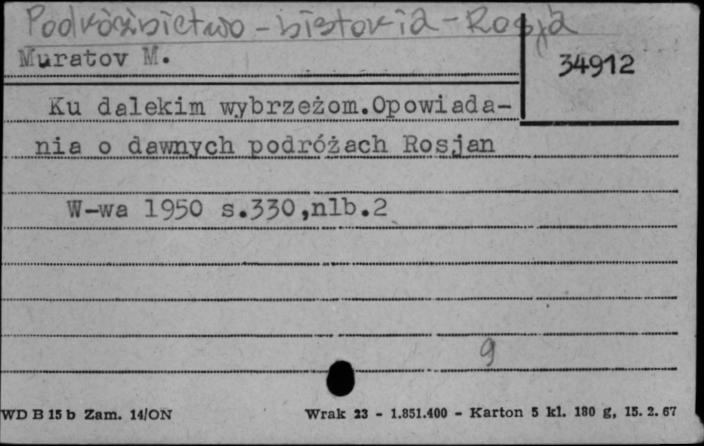 Podróżnictwo - historia - Rosja
Muratov M.
34912
Ku dalekim wybrzeżom.Opowiada-
nia o dawnych podróżach Rosjan
W-wa 1950 s.330,nlb.2
9
WD B 15 b Zam. 14/ON
Wrak 23 - 1.851.400 - Karton 5 kl. 180 g, 15. 2. 67